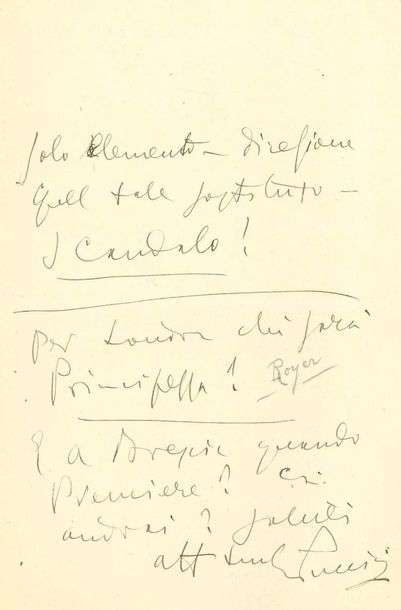 Solo elemento – direzione
quel tale sostituto –
Scandalo!
Per Londra chi farà
Principessa? Royer
E a Brescia quando
Premiere? Ci
andrai? Saluti
aff Puccini